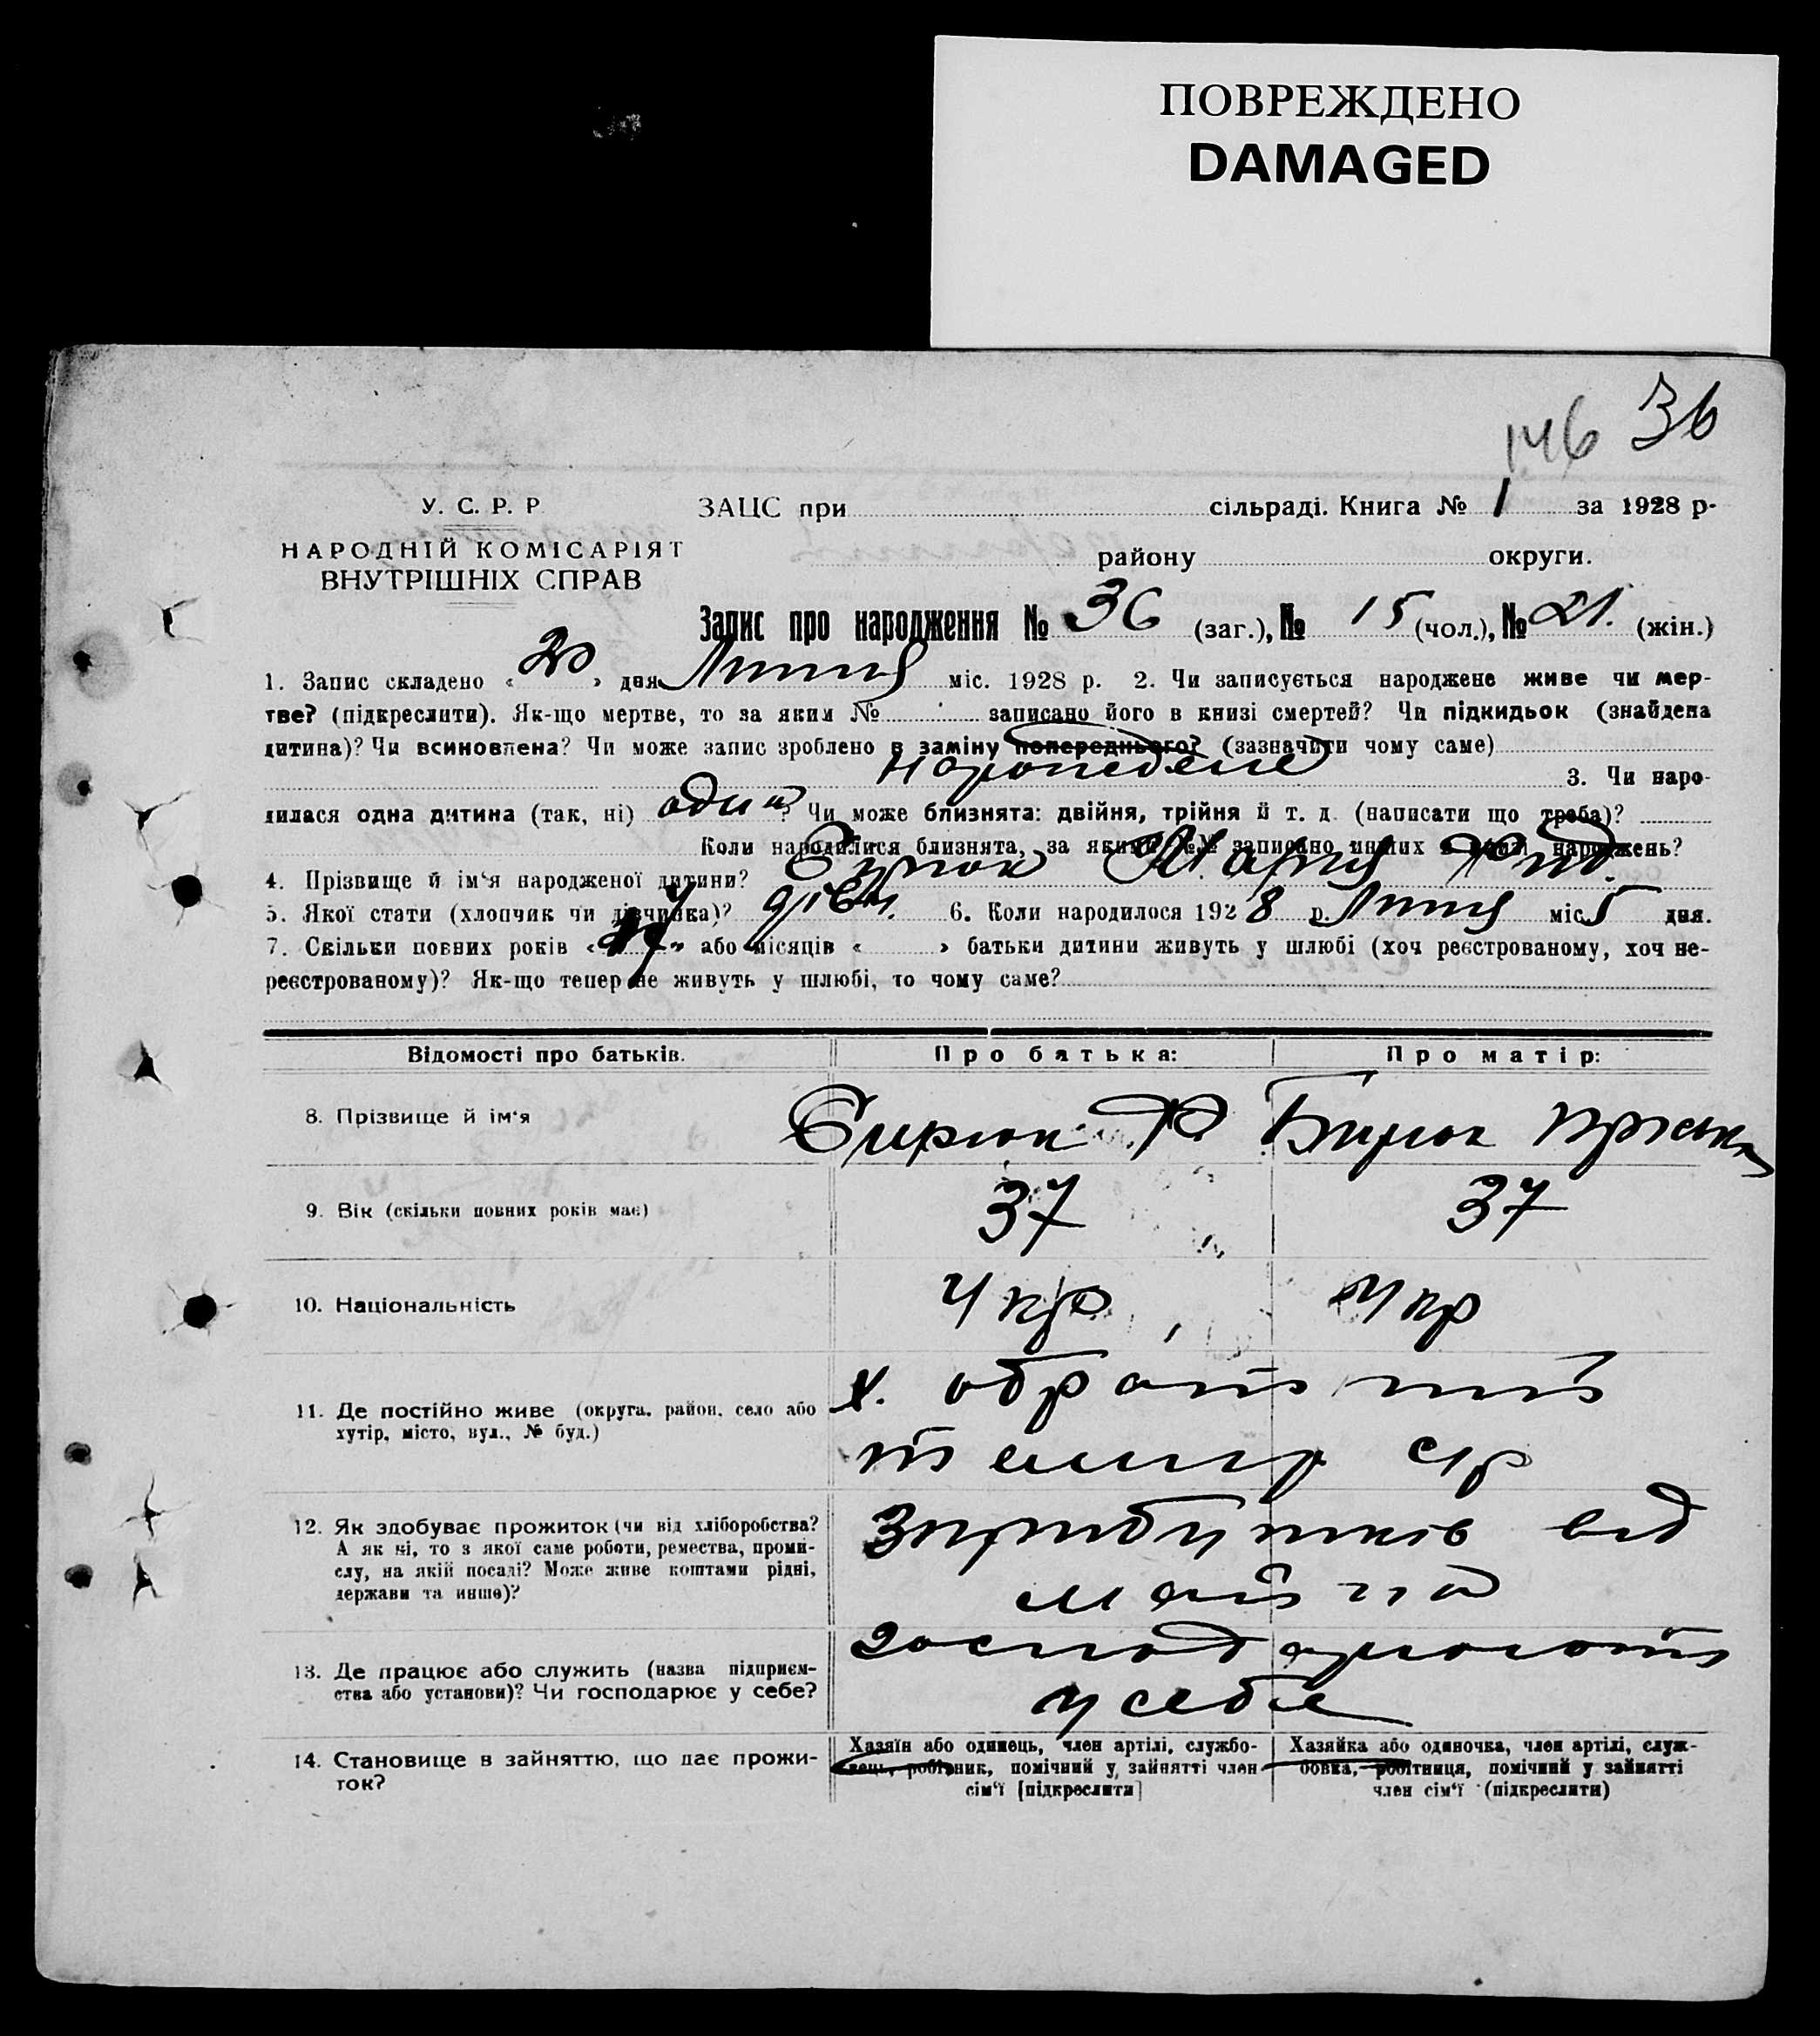 ПОВРЕЖДЕНО
DAMAGED
146 36
У. С. Р. Р
НАРОДНІЙ КОМІСАРІЯТ
ВНУТРІШНІХ СПРАВ
ЗАЦС при сільраді. Книга № 1 за 1928 р-
району округи.
Запис про народження № 36 (заг.), № 15 (чол.), № 21. (жін.)
1. Запис складено « 20 » дня Липня міс. 1928 р. 2. Чи записується народжене живе чи мер-
тве? (підкреслити). Як-що мертве, то за яким № записано його в книзі смертей? Чи підкидьок (знайдена
дитина)? Чи всиновлена? Чи може запис зроблено в заміну попереднього? (зазначити чому саме)
3. Чи наро-
дилася одна дитина (так, ні) один ? Чи може близнята: двійня, трійня й т. д. (написати що треба)?
Коли народилися близнята, за якими №№ записано инших в книзі народжень?
4. Прізвище й ім'я народженої дитини? Бирюк Мария
5. Якої стати (хлопчик чи дівчинка)? дівч. 6. Коли народилося 1928 р. Липня міс 5 дня.
7. Скільки повних років « » або місяців « » батьки дитини живуть у шлюбі (хоч реєстрованому, хоч не-
реєстрованому)? Як-що тепер не живуть у шлюбі, то чому саме?
Відомості про батьків. Про батька: Про матір:
8. Прізвище й ім'я Бирюк Бирюк Пріська
9. Вік (скільки повних років має) 37 37
10. Національність Укр Укр
11. Де постійно живе (округа, район, село або
хутір, місто, вул., № буд.)
х.
с/р
12. Як здобуває прожиток (чи від хліборобства?
А як ні, то з якої саме роботи, ремества, проми-
слу, на якій посаді? Може живе коштами рідні,
держави та инше)?
від
13. Де працює або служить (назва підприєм-
ства або установи)? Чи господарює у себе?
господарюють
у себе
14. Становище в зайняттю, що дає прожи-
ток?
Хазяїн або одинець, член артілі, службо-
вець, робітник, помічний у зайнятті член
сім'ї [підкреслити]
Хазяйка або одиночка, член артілі, служ-
бовка, робітниця, помічний у зайнятті
член сім'ї (підкреслити)